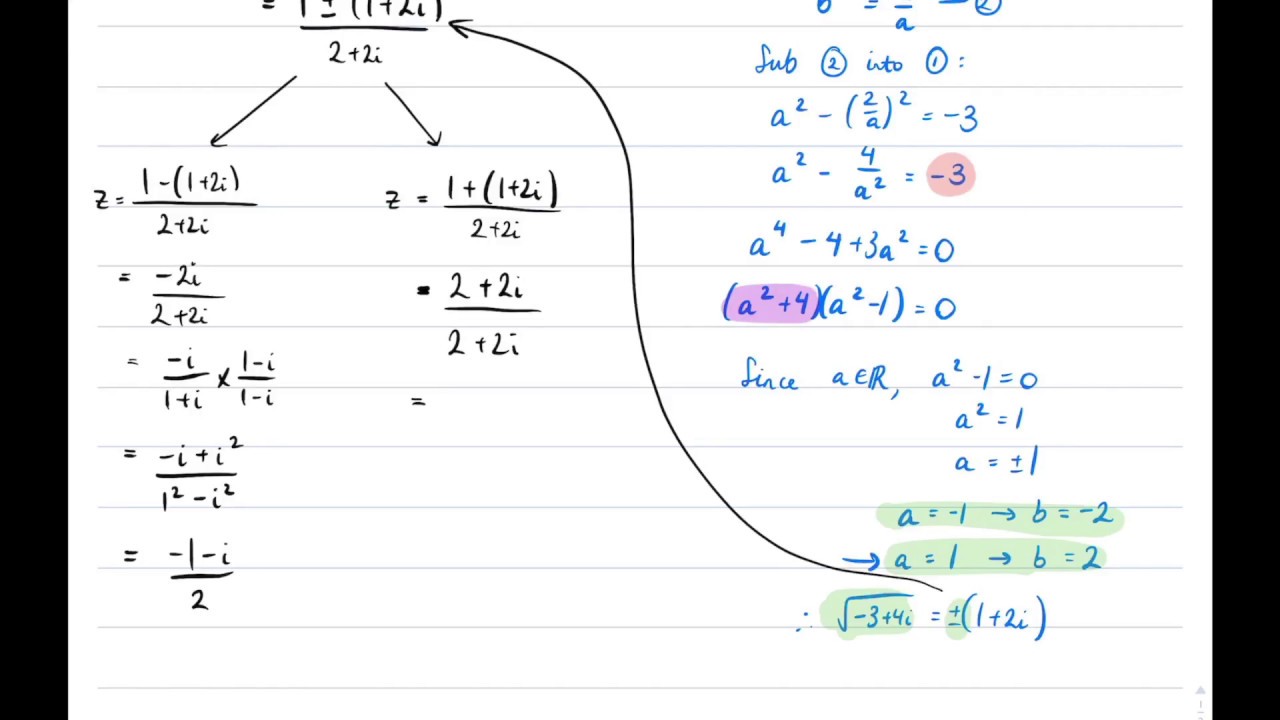 = (1 ± (1+2i))/(2+2i)
z = (1-(1+2i))/(2+2i)
= (-2i)/(2+2i)
= (-i)/(1+i) × (1-i)/(1-i)
= (-i+i²)/(1²-i²)
= (-1-i)/2
z = (1+(1+2i))/(2+2i)
= (2+2i)/(2+2i)
=
b = 2/a → ②
Sub ② into ①:
a² - (2/a)² = -3
a² - 4/a² = -3
a⁴ - 4 + 3a² = 0
(a²+4)(a²-1) = 0
Since a∈ℝ, a²-1=0
a² = 1
a = ±1
a = -1 → b = -2
→ a = 1 → b = 2
∴ √(-3+4i) = ±(1+2i)